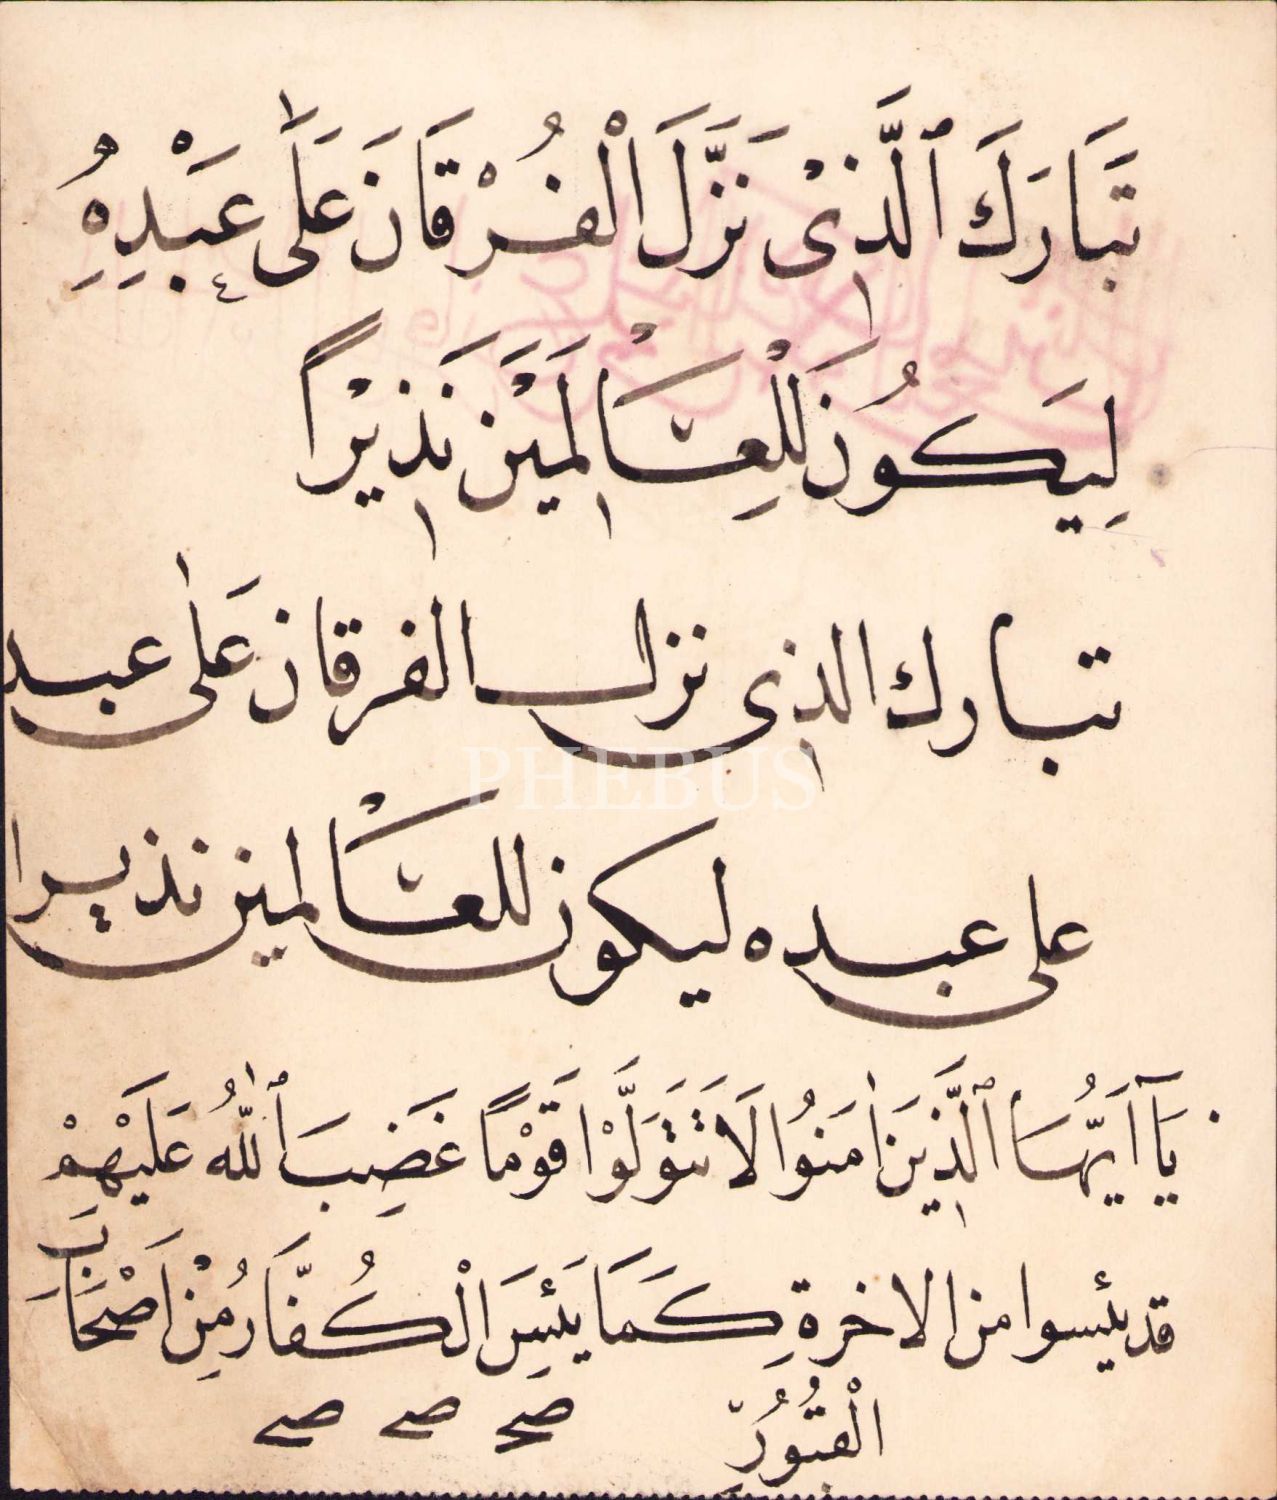 تَبَارَكَ ٱلَّذِىْ نَزَّلَ الْفُرْقَانَ عَلَى عَبْدِهِ
لِيَكُونَ لِلْعَالَمِيْنَ نَذِيْرًا
تبارك الذى نزل الفرقان عَلى عبد
على عبده ليكون للعالمين نذيرا
PHEBUS
يَآ اَيُّهَا ٱلَّذِينَ اٰمَنُوا لَا تَتَوَلَّوْا قَوْمًا غَضِبَ ٱللّٰهُ عَلَيْهِمْ
قد يئسوا من الاخرة كَمَا يَئِسَ الْكُفَّارُ مِنْ اَصْحَابِ
الْقُبُورِ
صح صح صح